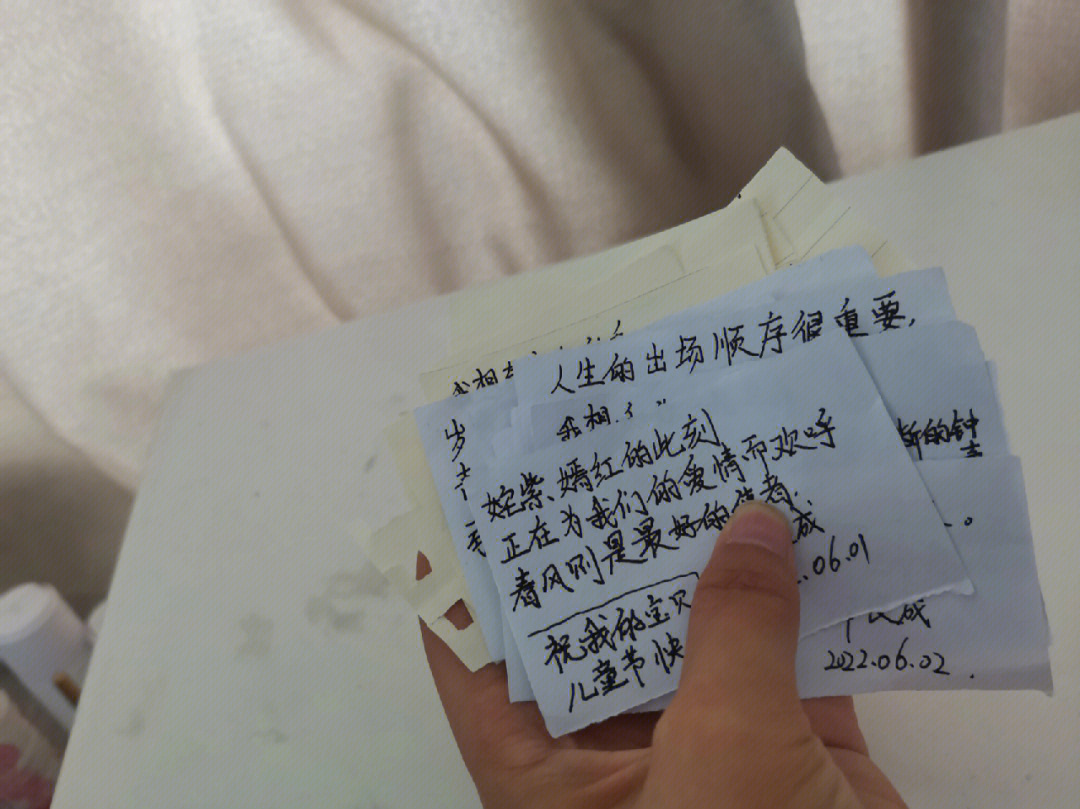 人生的出场顺序很重要,
我相
岁
姹紫、嫣红的此刻
正在为我们的爱情而欢呼
春风则是最好的使者.
成
.06.01
祝我的宝贝
儿童节快
的钟
。
成
2022.06.02.